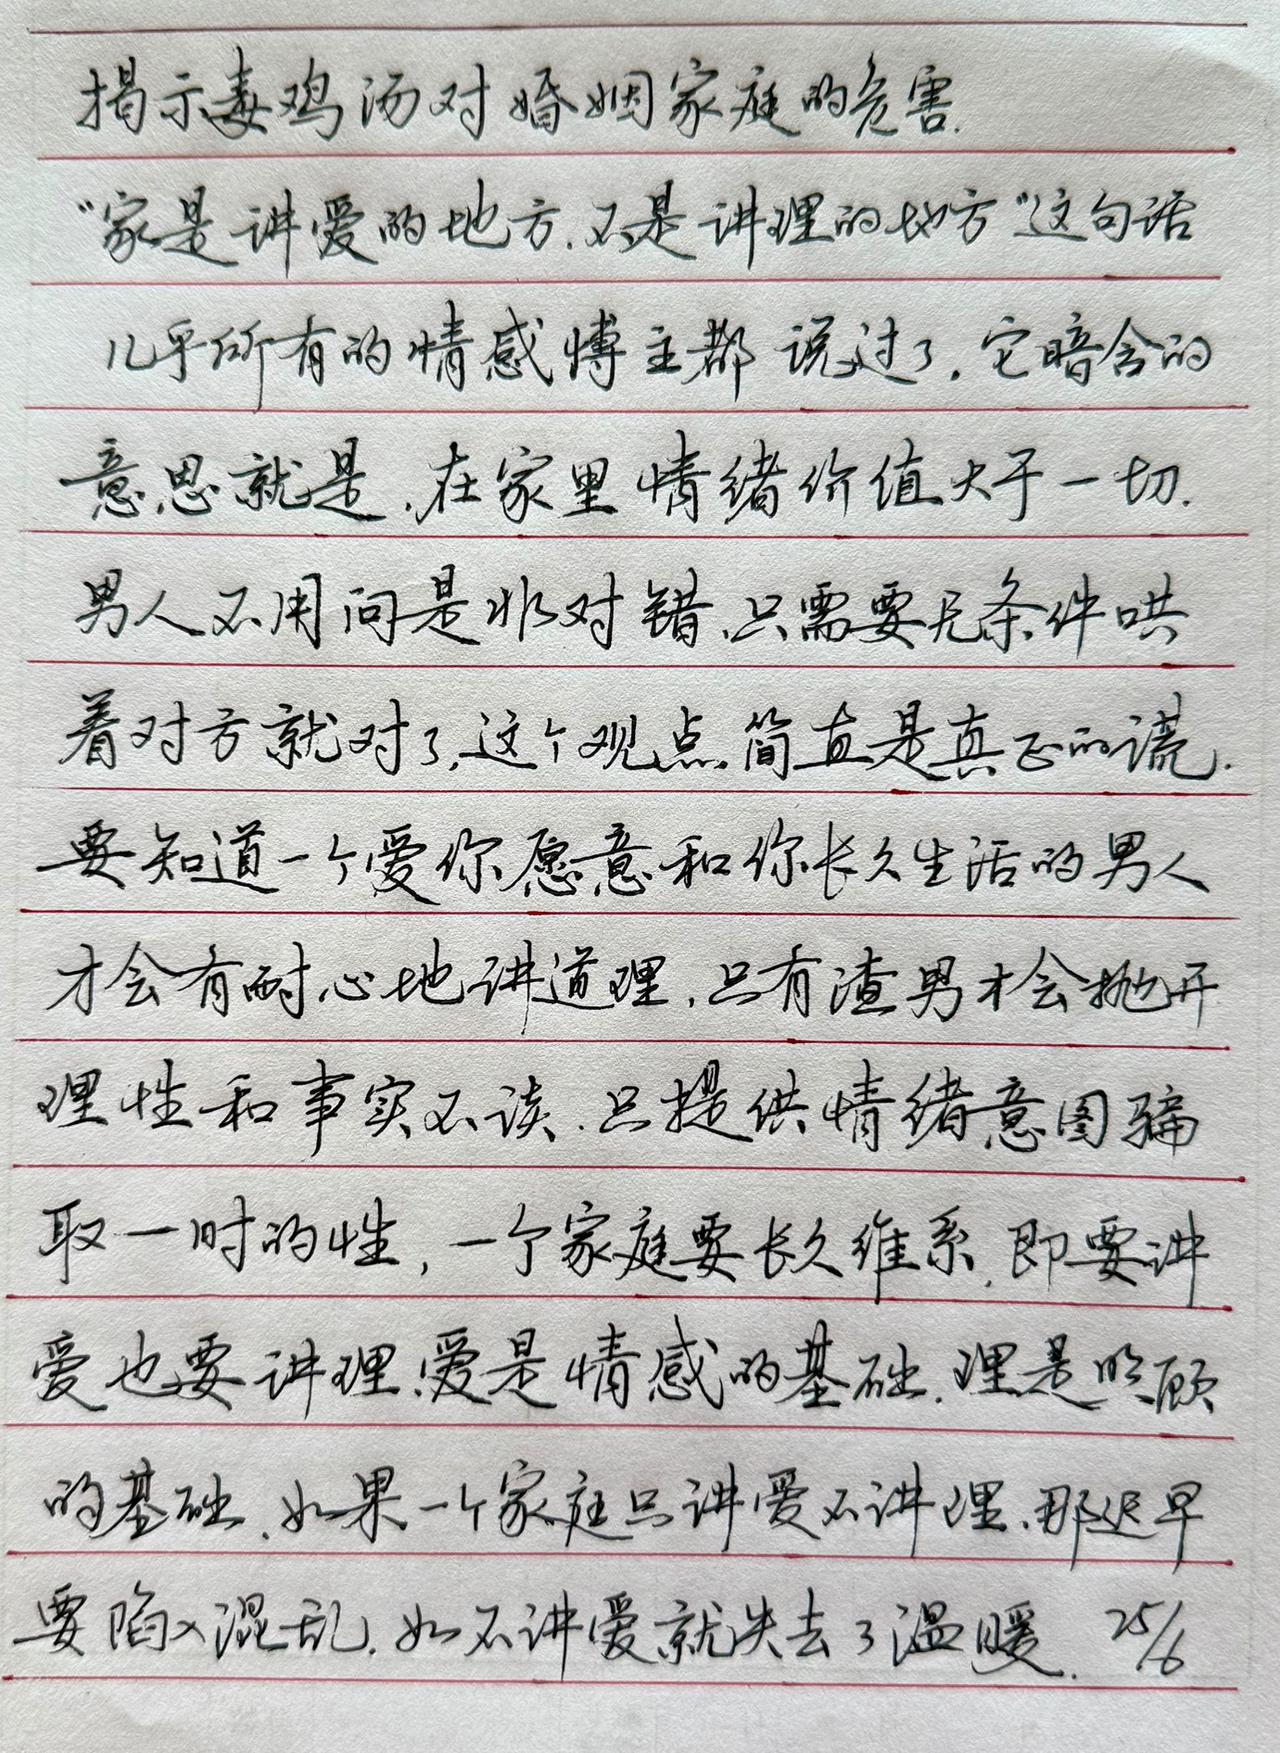 揭示毒鸡汤对婚姻家庭的危害.
"家是讲爱的地方.不是讲理的地方"这句话
几乎所有的情感博主都说过了.它暗含的
意思就是.在家里情绪价值大于一切.
男人不用问是非对错.只需要无条件哄
着对方就对了.这个观点简直是真正的谎.
要知道一个爱你愿意和你长久生活的男人
才会有耐心地讲道理.只有渣男才会抛开
理性和事实不谈.只提供情绪意图骗
取一时的性,一个家庭要长久维系.即要讲
爱也要讲理.爱是情感的基础.理是照顾
的基础.如果一个家庭只讲爱不讲理.那迟早
要陷入混乱.如不讲爱就失去了温暖. 25/6